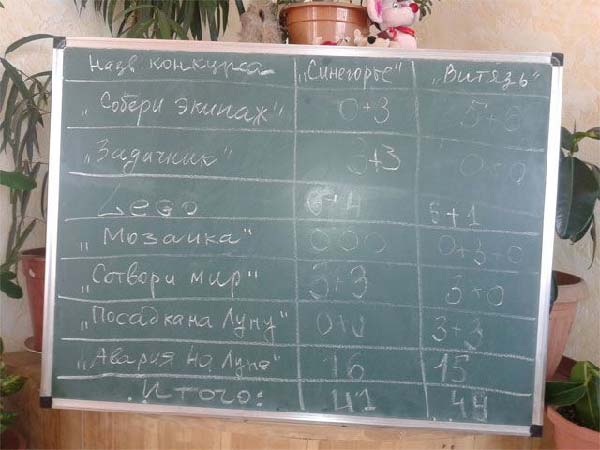 Назв конкурса „Синегорье" „Витязь"
„Собери экипаж" 0+3
„Задачник" 3+3 0+0
Lego 6+1
„Мозаика" 0 0 0 0+3+0
„Сотвори мир" 3+3 3+0
„Посадка на Луну" 0+0 3+3
„Авария на Луне" 16 15
Итого: 41 44